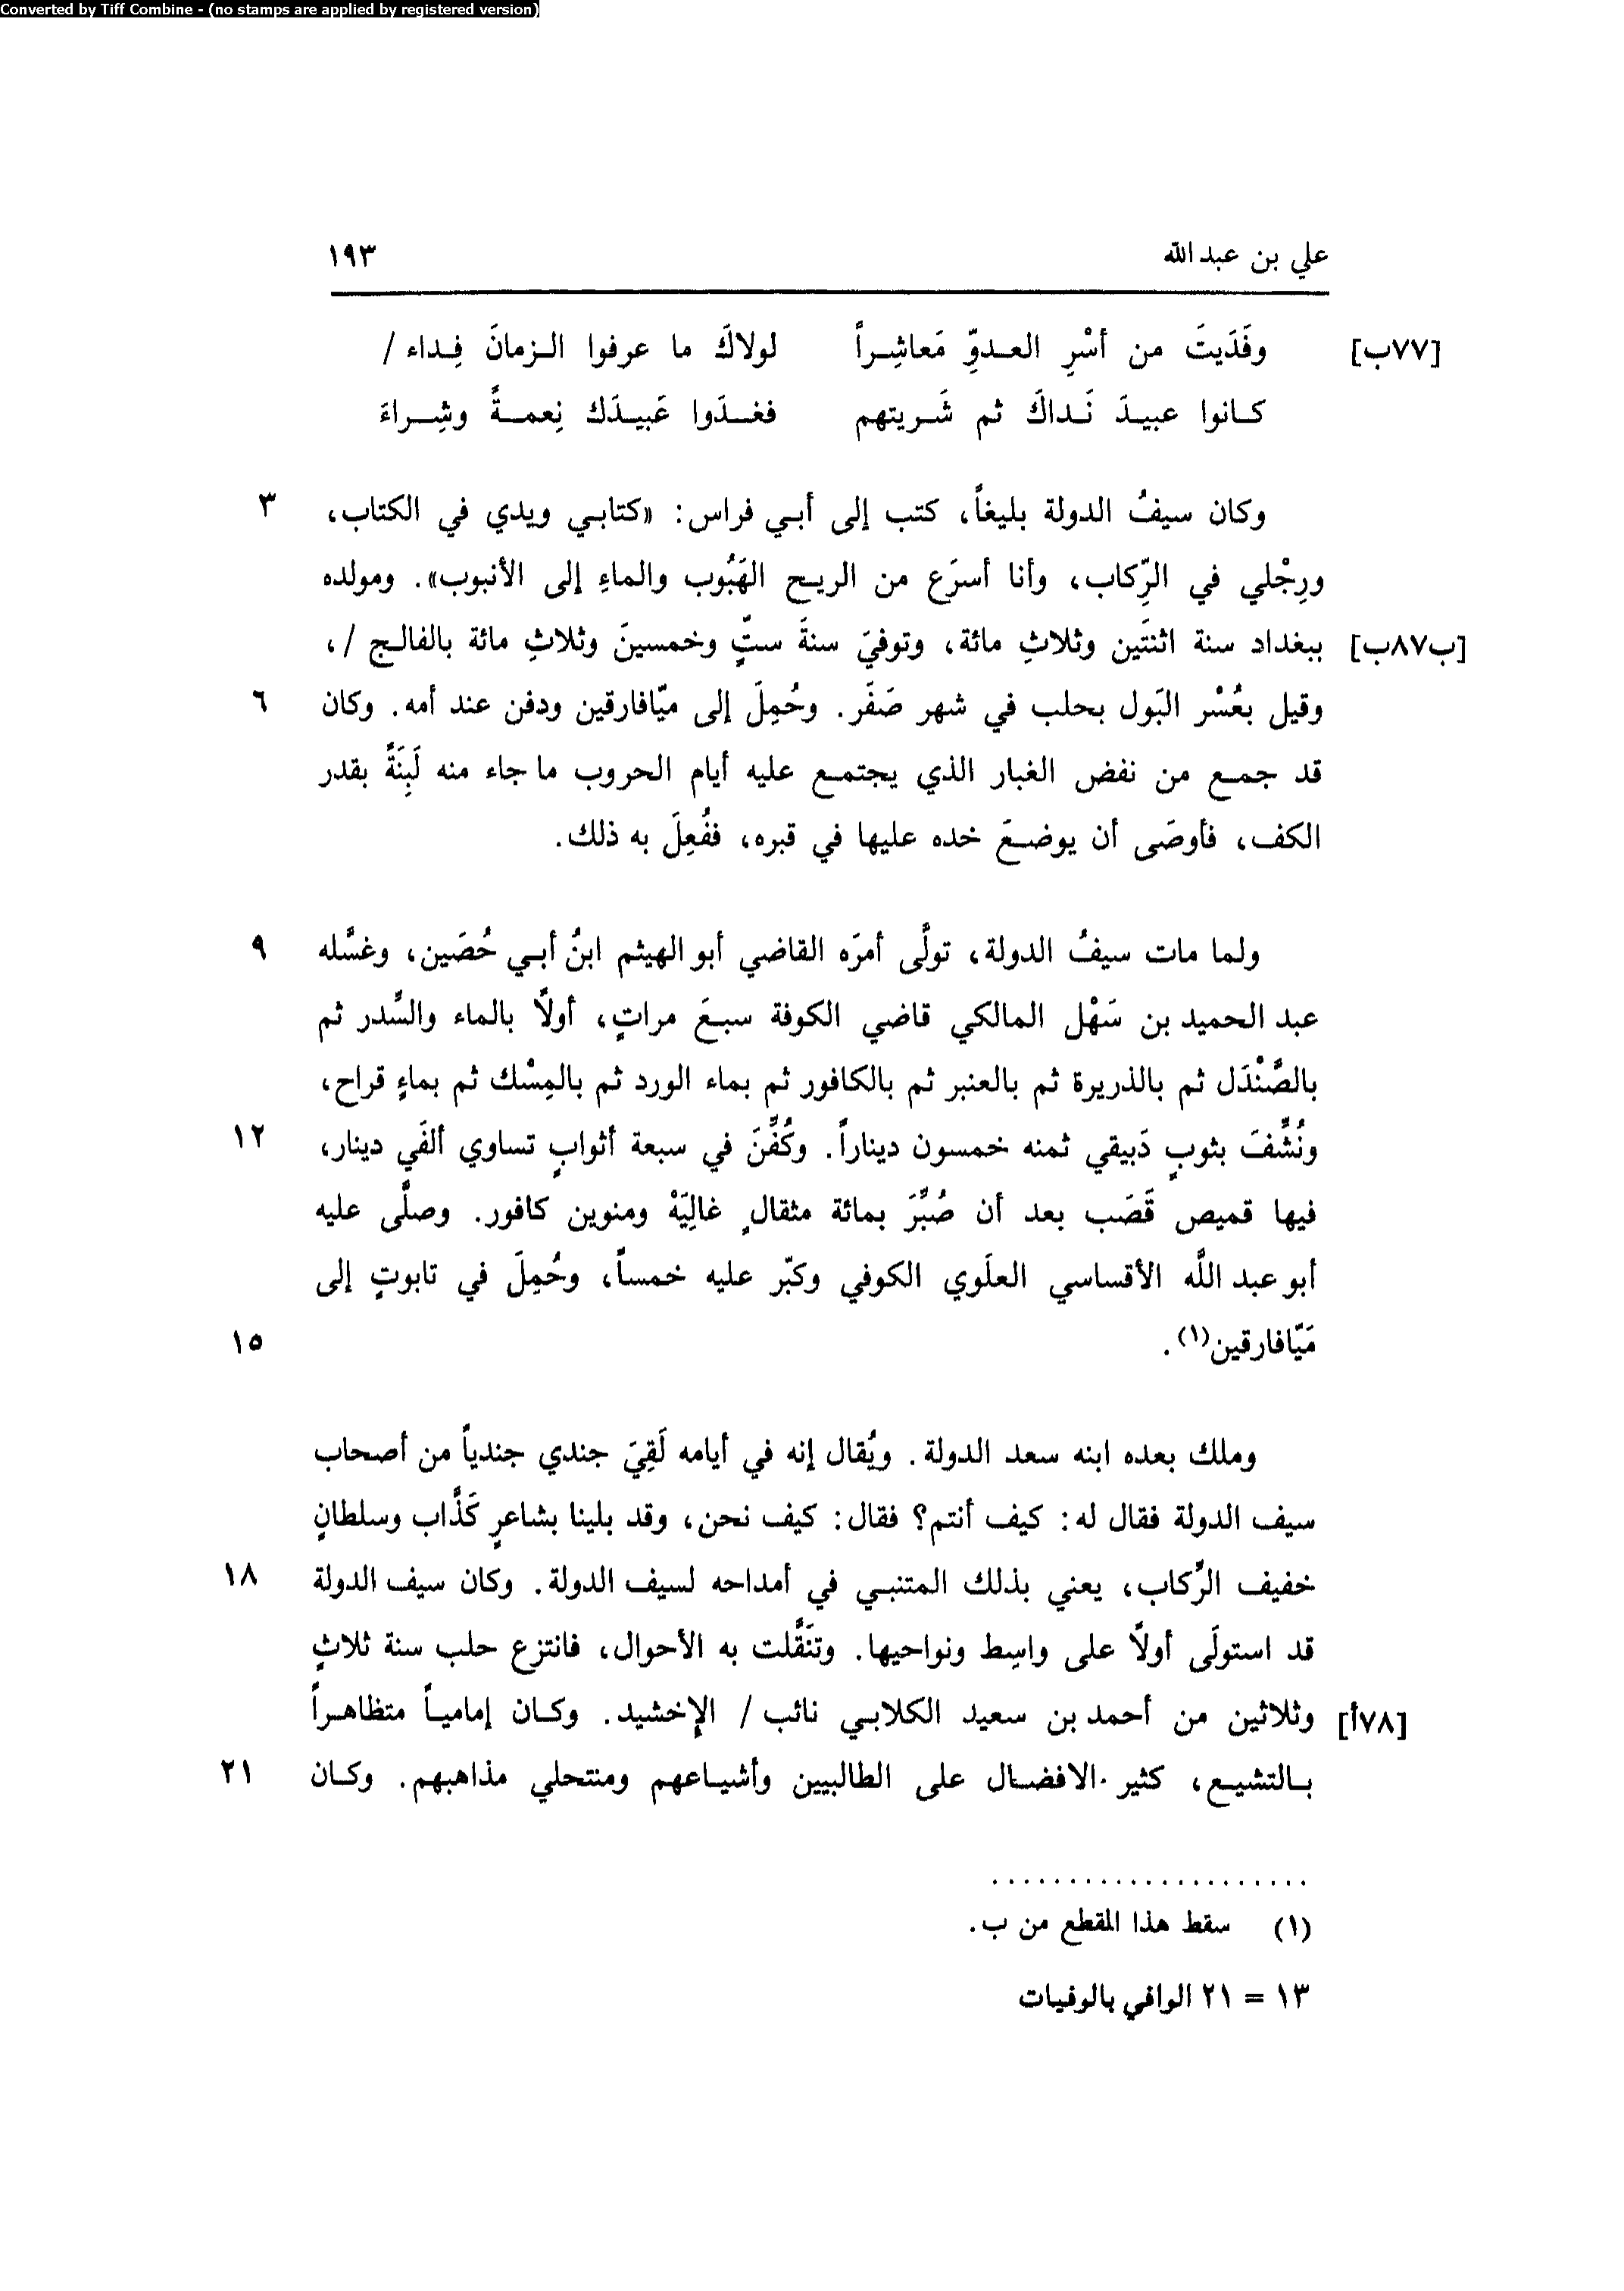 Converted by Tiff Combine - (no stamps are applied by registered version)
علي بن عبد الله ١٩٣
[٧٧ب] وفَدَيتَ من أسْرِ العـدوِّ مَعاشِـراً لولاكَ ما عرفوا الـزمانَ فِـداء /
كـانوا عبيـدَ نَـداكَ ثم شَـريتهم فغـدَوا عَبيـدَك نِعمـةً وشِـراءَ
وكان سيفُ الدولة بليغاً، كتب إلى أبـي فراس: «كتابـي ويدي في الكتاب، ٣
ورِجْلي في الرِّكاب، وأنا أسرَع من الريـح الهَبُوب والماءِ إلى الأنبوب». ومولده
[ب٨٧ب] ببغداد سنة اثنتَين وثلاثِ مائة، وتوفيَ سنةَ ستٍّ وخمسينَ وثلاثِ مائة بالفالـج /،
وقيل بعُسْر البَول بحلب في شهر صَفَر. وحُمِلَ إلى ميّافارقين ودفن عند أمه. وكان ٦
قد جمـع من نفض الغبار الذي يجتمـع عليه أيام الحروب ما جاء منه لَبِنَةً بقدر
الكف، فأوصَى أن يوضـعَ خده عليها في قبره، ففُعِلَ به ذلك.
ولما مات سيفُ الدولة، تولَّى أمرَه القاضي أبو الهيثم ابنُ أبـي حُصَين، وغسَّله ٩
عبد الحميد بن سَهْل المالكي قاضي الكوفة سبـعَ مراتٍ، أولاً بالماء والسِّدر ثم
بالصَّنْدَل ثم بالذريرة ثم بالعنبر ثم بالكافور ثم بماء الورد ثم بالمِسْك ثم بماءٍ قراح،
ونُشِّفَ بثوبٍ دَبيقي ثمنه خمسون ديناراً. وكُفِّنَ في سبعة أثوابٍ تساوي ألفَي دينار، ١٢
فيها قميص قَصَب بعد أن صُبِّرَ بمائة مثقالٍ غالِيَهْ ومنوين كافور. وصلَّى عليه
أبو عبد اللَّه الأقساسي العلَوي الكوفي وكبّر عليه خمساً، وحُمِلَ في تابوتٍ إلى
مَيّافارقين(١). ١٥
وملك بعده ابنه سعد الدولة. ويُقال إنه في أيامه لَقِيَ جندي جندياً من أصحاب
سيف الدولة فقال له: كيف أنتم؟ فقال: كيف نحن، وقد بلينا بشاعرٍ كَذَّاب وسلطانٍ
خفيف الرِّكاب، يعني بذلك المتنبـي في أمداحه لسيف الدولة. وكان سيف الدولة ١٨
قد استولَى أولاً على واسِط ونواحيها. وتنَقَّلت به الأحوال، فانتزع حلب سنة ثلاثٍ
[٧٨أ] وثلاثين من أحمد بن سعيد الكلابـي نائب / الإخشيد. وكـان إمامياً متظاهـراً
بـالتشيـع، كثير الافضـال على الطالبيين وأشيـاعهم ومنتحلي مذاهبهم. وكـان ٢١
. . . . . . . . . . . . . . . . . . . . .
(١) سقط هذا المقطع من ب.
١٣ = ٢١ الوافي بالوفيات